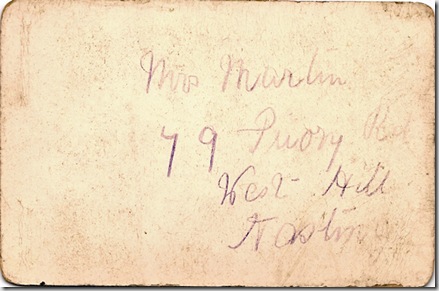 Mrs Martin
79 Priory Rd
West Hill
Hastin